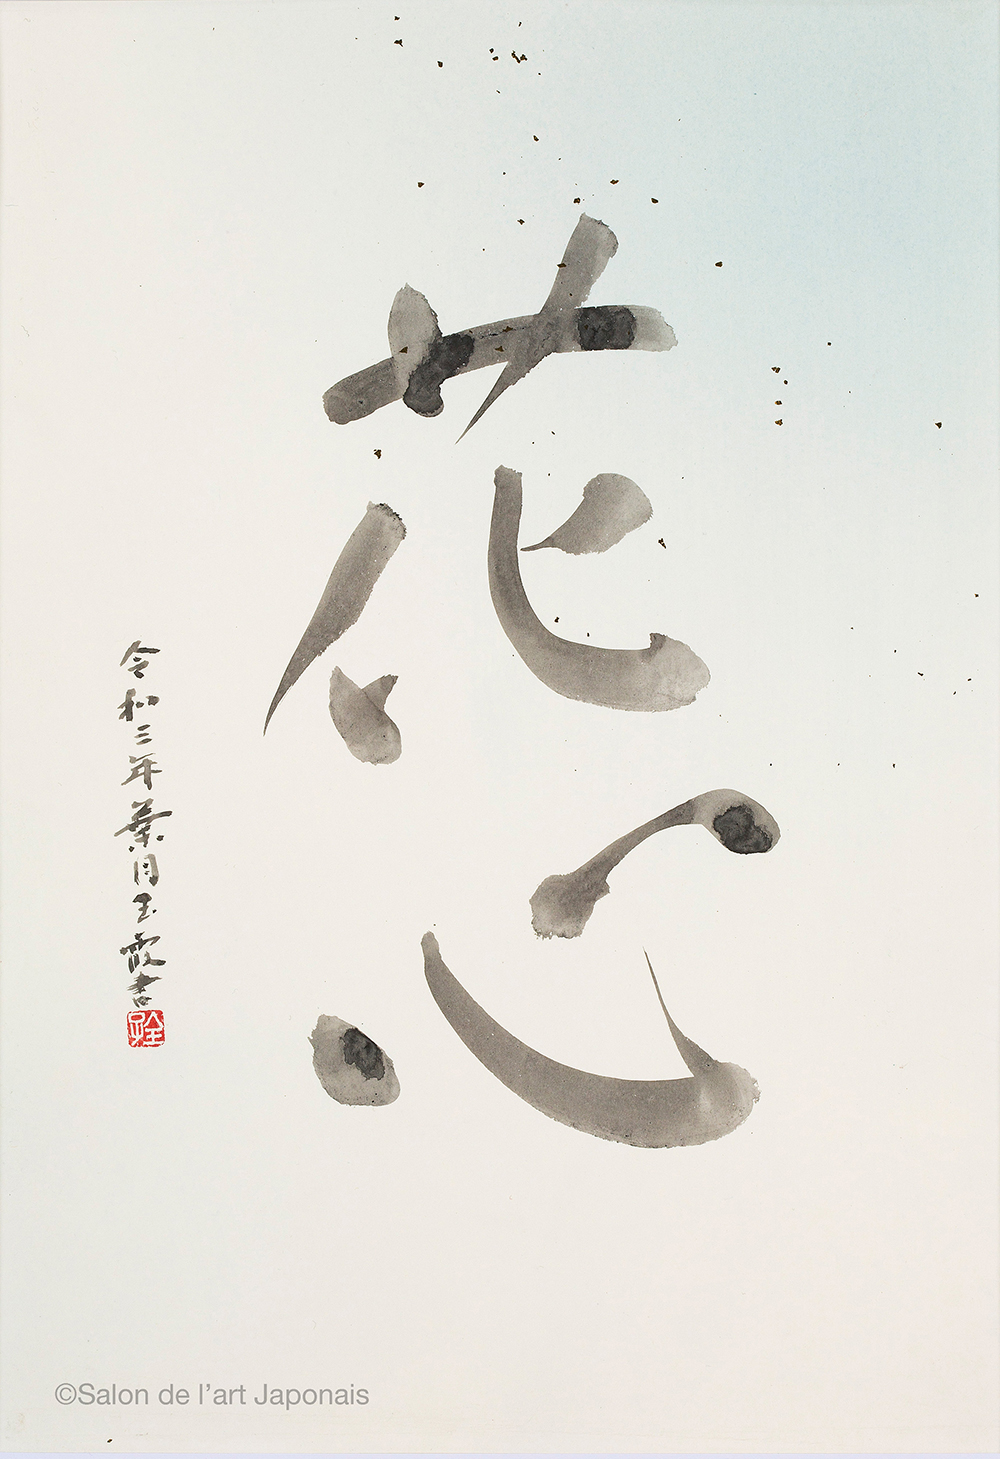 花心
令和三年葉月玉霞書
©Salon de l'art Japonais